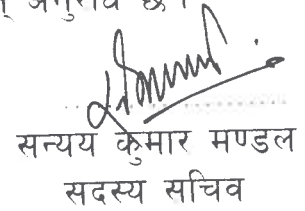 अनुरोध छ ।
सन्यय कुमार मण्डल
सदस्य सचिव